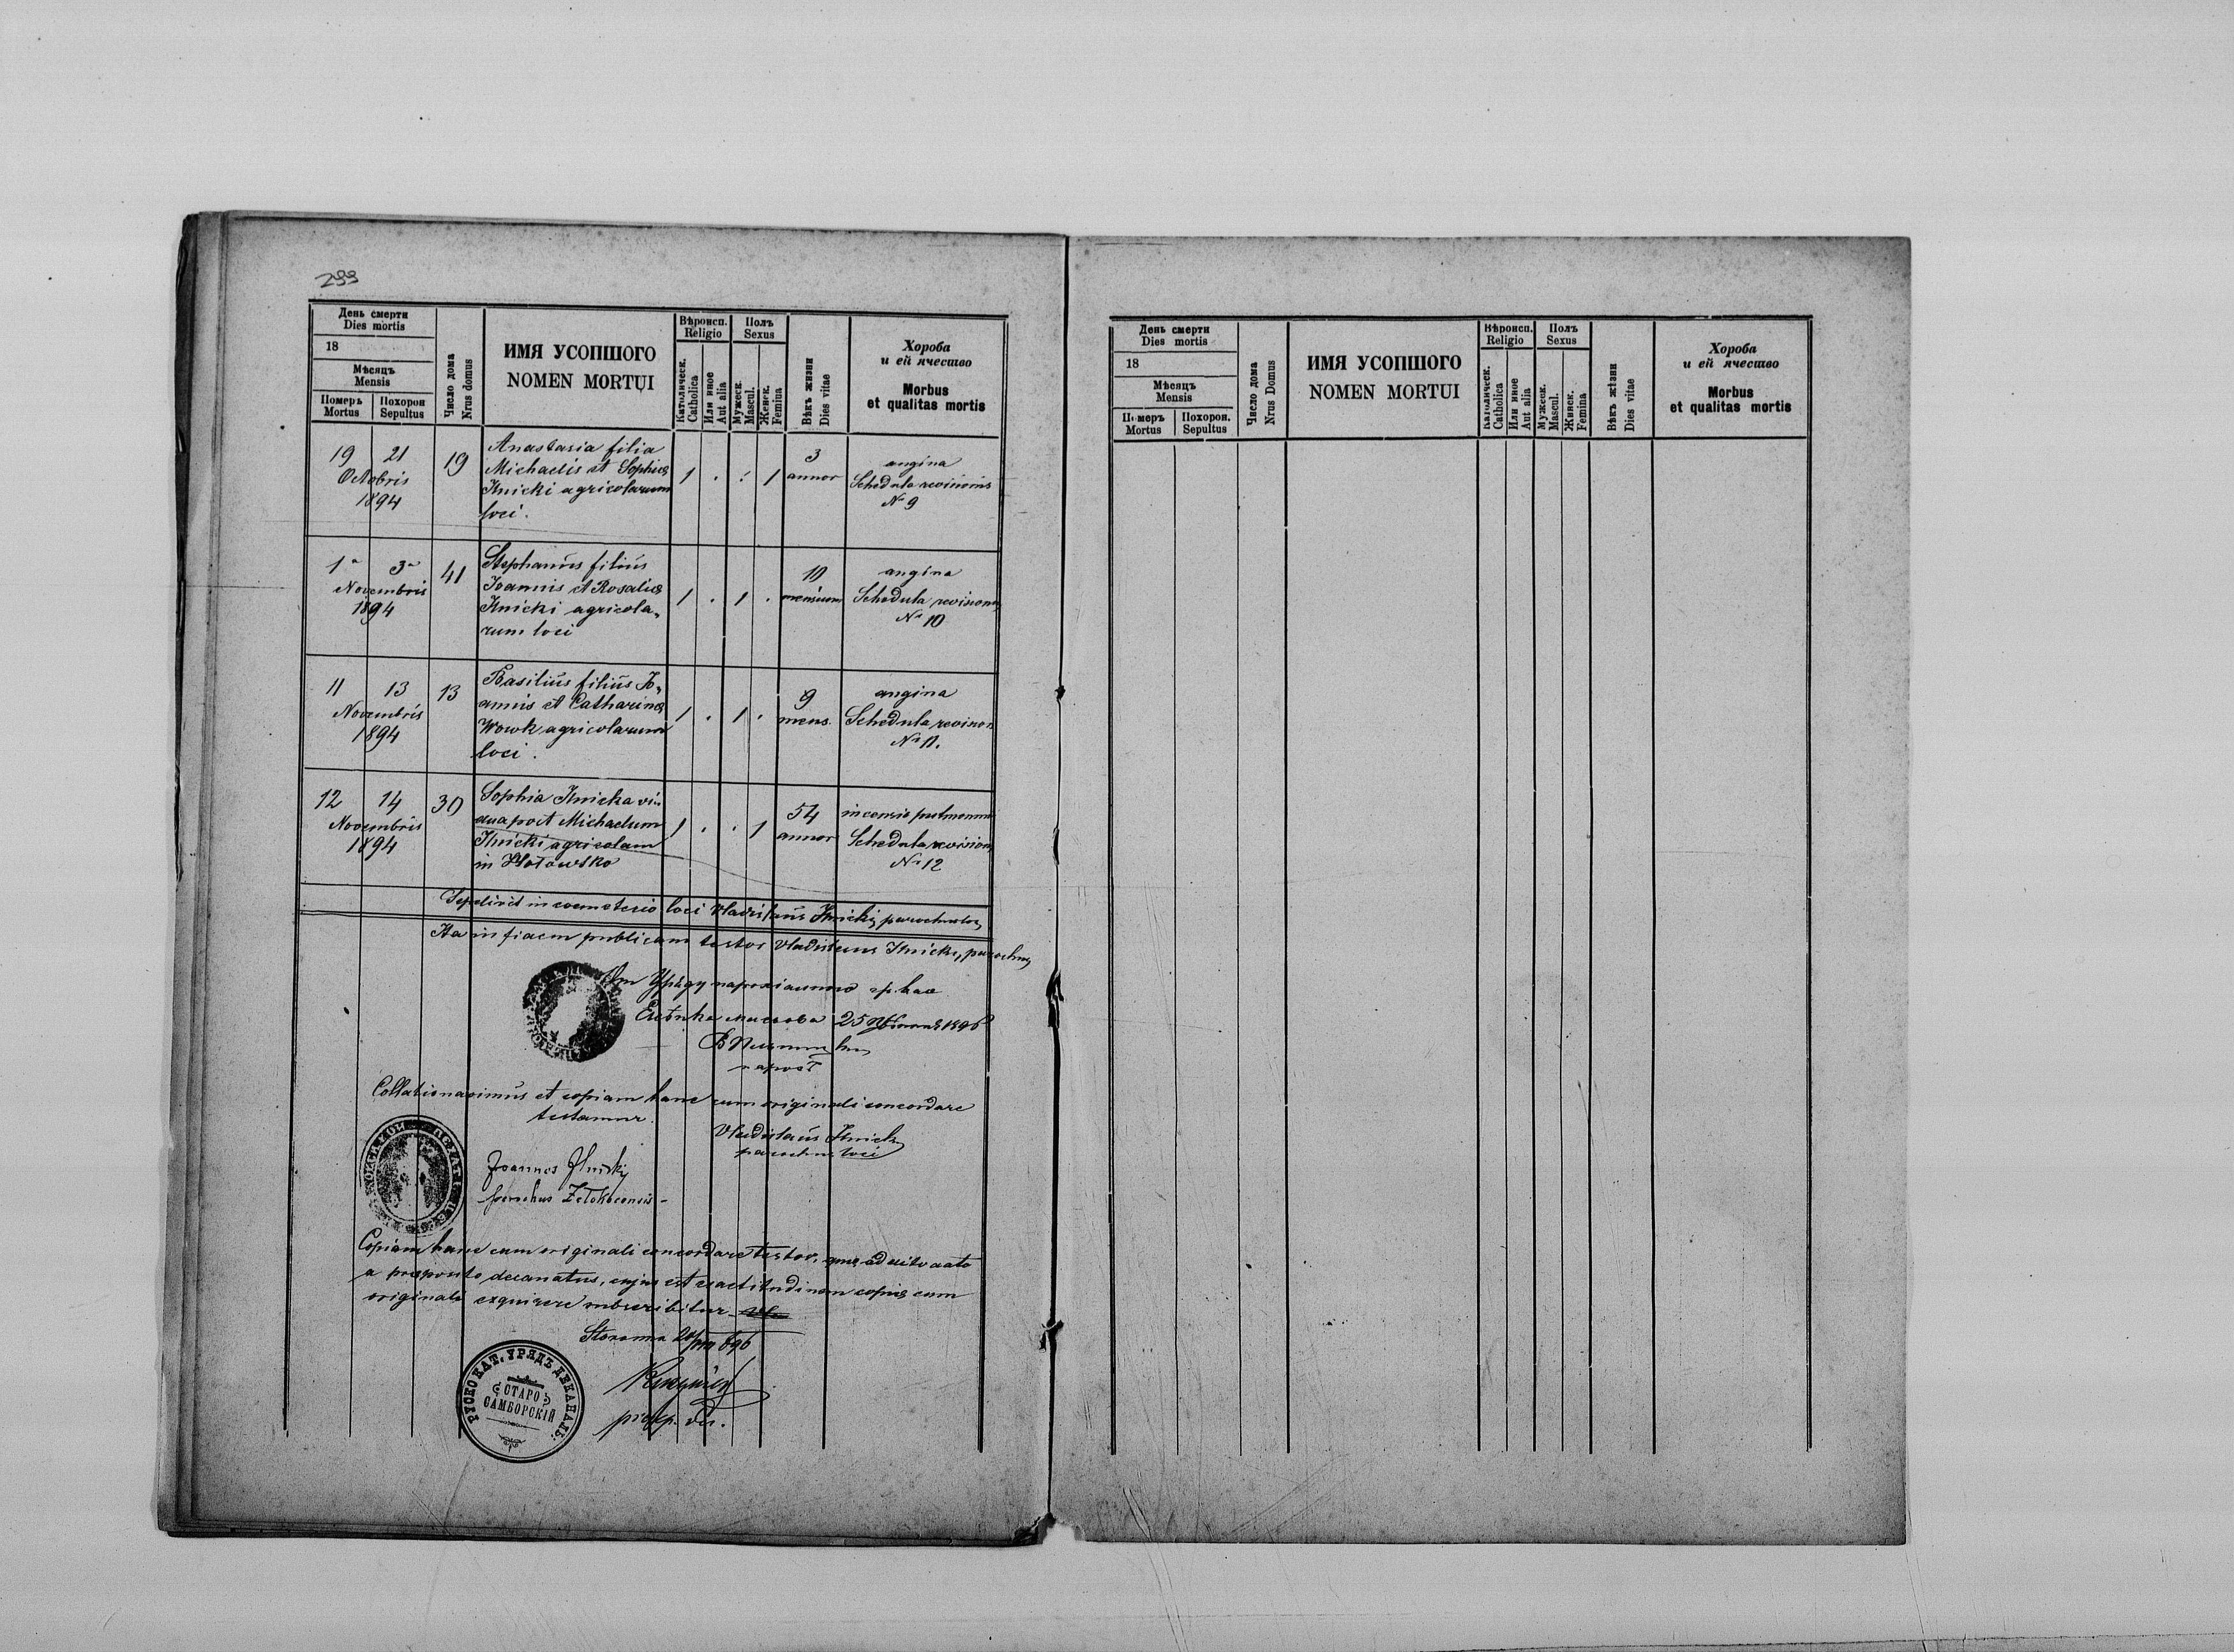 299
День смерти
Dies mortis
18
Мѣсяцъ
Mensis
Померъ
Mortus
Похорон
Sepultus
Число дома
Nrus domus
ИМЯ УСОПШОГО
NOMEN MORTUI
Вѣроисп.
Religio
Католическ.
Catholica
Или иное
Aut alia
Полъ
Sexus
Мужеск.
Mascul.
Женск.
Femina
Вѣкъ жизни
Dies vitae
Хороба
и ей ячество
Morbus
et qualitas mortis
19 21
Octobris
1894
19
Anastasia filia
Michaelis et Sophiæ
Ilnicki agricolarum
loci.
1 . . 1
3
annor
angina
Schedula revisionis
No 9
1a 3a
Novembris
1894
41
Stephanus filius
Joannis et Rosaliæ
Ilnicki agricola-
rum loci
1 . 1 .
10
mensium
angina
Schedula revisionis
No 10
11 13
Novembris
1894
13
Basilius filius Jo-
annis et Catharinæ
Wowk agricolarum
loci.
1 . 1 .
9
mens.
angina
Schedula revision
No 11.
12 14
Novembris
1894
30
Sophia Ilnicka vi-
dua post Michaelum
Ilnicki agricolam
in
1 . . 1
54
annor
Schedula revision
No 12
Sepelivit in coemeterio loci Vladislaus Ilnicki, parochus loci
Ita in fidem publicam testor Vladislaus Ilnicki, parochus
От Уряду парохіяльного
25 1896
Collationavimus et copiam hanc cum originali concordare
testamur.
Vladislaus Ilnicki
parochus loci
Joannes Ilnicki
parochus
Copiam hanc cum originali concordare testor,
a præposito decanatus, cujus est exactitudinem copiæ cum
originali exquirere subscribitur
896
РУСКО КАТ. УРЯДЪ ДЕКАНАЛЬ.
СТАРО
САМБОРСКІЙ
День смерти
Dies mortis
18
Мѣсяцъ
Mensis
Померъ
Mortus
Похорон.
Sepultus
Число дома
Nrus Domus
ИМЯ УСОПШОГО
NOMEN MORTUI
Вѣроисп.
Religio
Католическ.
Catholica
Или иное
Aut alia
Полъ
Sexus
Мужеск.
Mascul.
Женск.
Femina
Вѣкъ жізни
Dies vitae
Хороба
и ей ячество
Morbus
et qualitas mortis